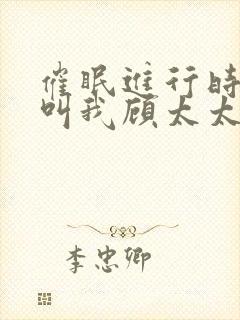 催眠進行時
叫我顾太太
李忠卿